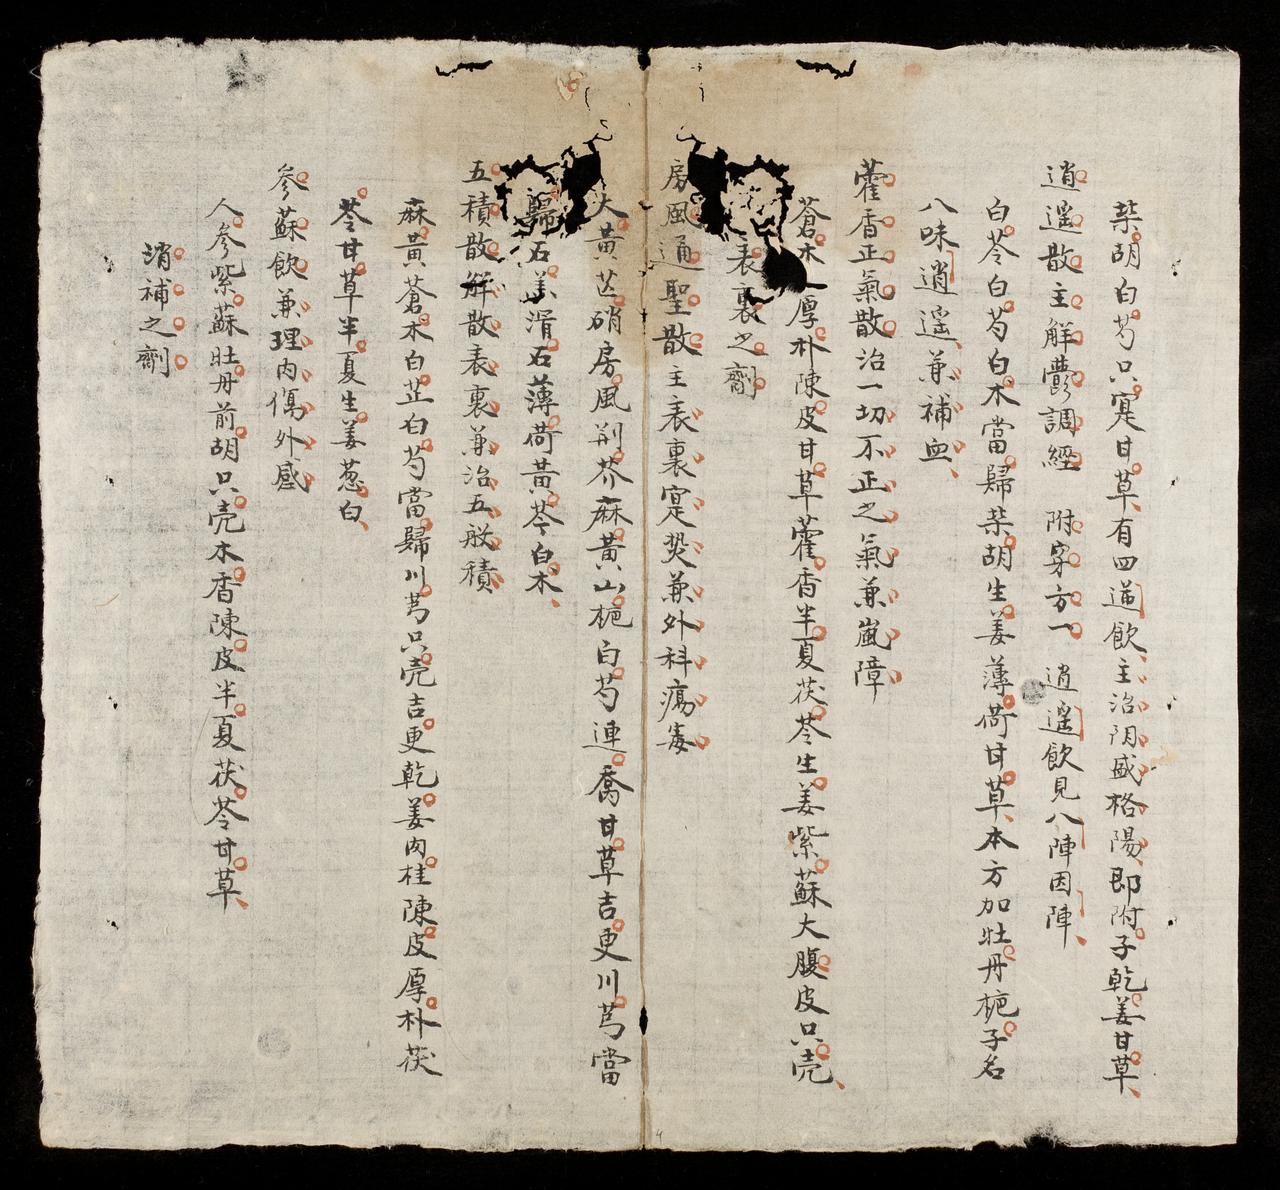 柴胡白芍只寔甘草有四逆飲主治阴盛格陽即附子乾姜甘草
逍遥散主解鬱調經 附穿方一 逍遥飲見八陣因陣
白苓白芍白木當歸柴胡生姜薄荷甘草本方加牡丹梔子名
八味逍遥兼補血
藿香正氣散治一切不正之氣兼嵐障
蒼木厚朴陳皮甘草藿香半夏茯苓生姜紫蘇大腹皮只壳
表裏之劑
房風通聖散主表裏寔热兼外科瘍毒
大黃芒硝房風荆芥麻黃山梔白芍連喬甘草吉更川芎當
歸石羔滑石薄荷黃芩白木
五積散觧散表裏兼治五般積
麻黃蒼木白芷白芍當歸川芎只壳吉更乾姜肉桂陳皮厚朴茯
苓甘草半夏生姜葱白
參蘇飲兼理内傷外感
人參紫蘇牡丹前胡只壳木香陳皮半夏茯苓甘草
消補之劑